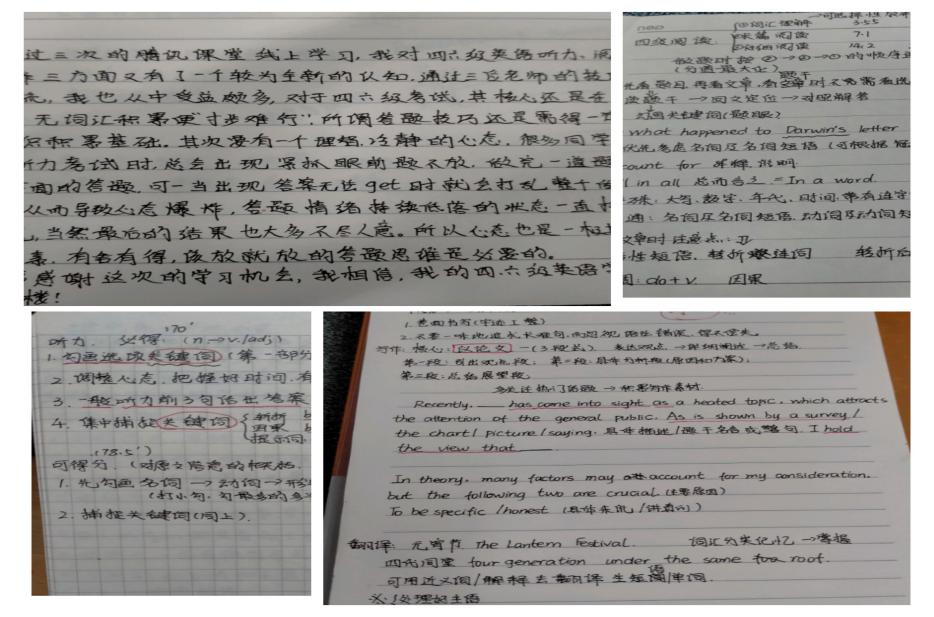 过三次的腾讯课堂线上学习,我对四六级英语听力、阅
三方面又有了一个较为全新的认知,通过三名老师的技
我也从中受益颇多,对于四六级考试,其核心还是在
无词汇积累便“寸步难行”;所谓答题技巧还是需得一
积累基础。其次要有一个理智,冷静的心态,很多同学
听力考试时,总会出现紧抓眼前题不放,做完一道题
面的答题,可一当出现答案无法get时就会打乱整个
从而导致心态爆炸,答题情绪持续低落的状态一直
当然最后的结果也大多不尽人意。所以心态也是一
有舍有得,该放就放的答题思维是必要的。
感谢这次的学习机会,我相信,我的四.六级英语学
楼!
词汇理解 3.55
四级阅读 长篇阅读 7.1
仔细阅读 14.2
做题时按 ②→③→① 的顺序
先看题目,再看文章,看文章时不需看选
读题干 → 回文定位 → 对照解答
勾画关键词(题眼)
What happened to Darwin's letter
优先考虑名词及名词短语(可根据
count for 解释,说明
in all 总而言之 = In a word.
特殊:大写、数字、年代、时间、带有连字
普通:名词及名词短语,动词及动词短
文章时注意点:
性短语,转折连词 转折后
因:do+v. 因果
170'
听力. 必得. (n→v./adj)
1. 勾画选项关键词(第一部分
2. 调整心态,把握好时间,有
3. 一般听力前3句话出答案
4. 集中捕捉关键词 转折
因果
提示词
(78.5')
可得分.(对原文隐意的概括.
1. 先勾画名词 → 动词 → 形
(打小勾,勾最多的
2. 捕捉关键词(同上).
1. 卷面书写(字迹工整)
2. 不要一味地追求长难句,而忽视语法错误,得不偿失。
写作:核心:议论文 —(3段式) 表达观点 → 详细阐述 → 总结.
第一段:引出观点段; 第二段:具体分析段(原因和方案);
第三段:总结展望段.
多关注热门话题 → 积累写作素材.
Recently, ___ has come into sight as a heated topic, which attracts
the attention of the general public. As is shown by a survey/
the chart/ picture/saying, 具体描述/题干名言或警句. I hold
the view that ___
In theory, many factors may account for my consideration.
but the following two are crucial (主要原因)
To be specific /honest (具体来说 /讲真的)
翻译: 元宵节 The Lantern Festival. 词汇分类记忆 → 掌握
四代同堂 four generation under the same roof.
可用近义词/解释去翻译生短语/单词.
※:处理好主语